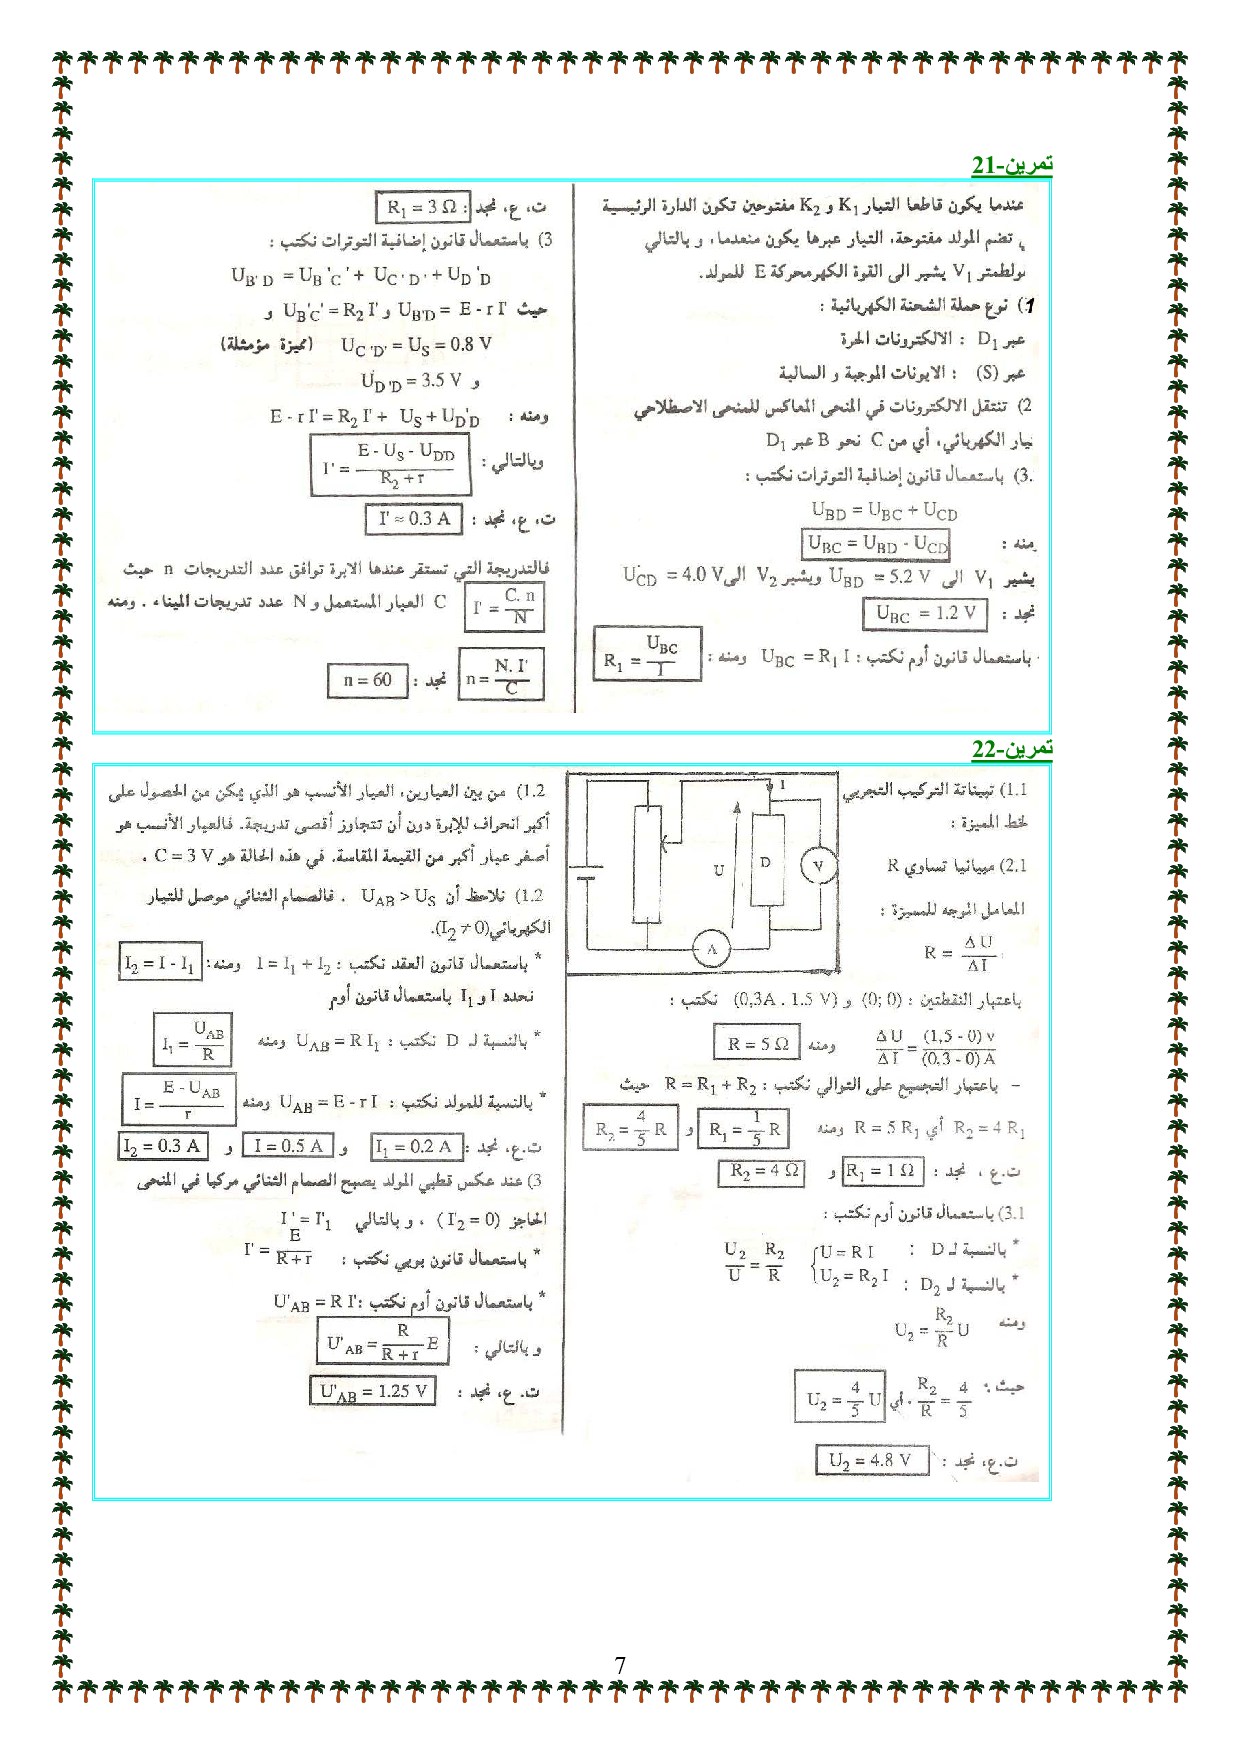 تمرين-21
عندما يكون قاطعا التيار K₁ و K₂ مفتوحين تكون الدارة الرئيسية
تضم المولد مفتوحة، التيار عبرها يكون منعدما، و بالتالي
ولطمتر V₁ يشير الى القوة الكهرمحركة E للمولد.
1) نوع حملة الشحنة الكهربائية :
عبر D₁ : الالكترونات الحرة
عبر (S) : الايونات الموجبة و السالبة
2) تنتقل الالكترونات في المنحى المعاكس للمنحى الاصطلاحي
تيار الكهربائي، أي من C نحو B عبر D₁
3.) باستعمال قانون إضافية التوترات نكتب :
U_BD = U_BC + U_CD
منه : U_BC = U_BD - U_CD
يشير V₁ الى U_BD = 5.2 V ويشير V₂ الى U_CD = 4.0 V
نجد : U_BC = 1.2 V
باستعمال قانون أوم نكتب : U_BC = R₁ I ومنه : R₁ = U_BC / I
ت، ع، نجد : R₁ = 3 Ω
3) باستعمال قانون إضافية التوترات نكتب :
U_B'D = U_B'C' + U_C'D' + U_D'D
حيث U_B'D = E - r I' و U_B'C' = R₂ I' و
U_C'D' = U_S = 0.8 V (مميزة مؤمثلة)
و U_D'D = 3.5 V
ومنه : E - r I' = R₂ I' + U_S + U_D'D
وبالتالي : I' = (E - U_S - U_DD) / (R₂ + r)
ت، ع، نجد : I' ≈ 0.3 A
فالتدريجة التي تستقر عندها الابرة توافق عدد التدريجات n حيث
I' = C. n / N C العيار المستعمل و N عدد تدريجات الميناء . ومنه
n = N. I' / C نجد : n = 60
تمرين-22
1.1) تبيانة التركيب التجريبي
لخط المميزة :
I
U
D
V
A
2.1) مبيانيا تساوي R
المعامل الموجه للمميزة :
R = Δ U / Δ I
باعتبار النقطتين : (0; 0) و (0,3A . 1.5 V) نكتب :
Δ U / Δ I = (1,5 - 0) v / (0,3 - 0) A ومنه R = 5 Ω
– باعتبار التجميع على التوالي نكتب : R = R₁ + R₂ حيث
R₂ = 4 R₁ أي R = 5 R₁ ومنه R₁ = 1/5 R و R₂ = 4/5 R
ت.ع ، نجد : R₁ = 1 Ω و R₂ = 4 Ω
3.1) باستعمال قانون أوم نكتب :
* بالنسبة لـ D : U = R I
* بالنسبة لـ D₂ : U₂ = R₂ I
U₂ / U = R₂ / R
ومنه U₂ = R₂/R U
حيث : R₂/R = 4/5 ، أي U₂ = 4/5 U
ت.ع، نجد : U₂ = 4.8 V
1.2) من بين العيارين، العيار الأنسب هو الذي يمكن من الحصول على
أكبر انحراف للإبرة دون أن تتجاوز أقصى تدريجة. فالعيار الأنسب هو
أصفر عيار أكبر من القيمة المقاسة. في هذه الحالة هو C = 3 V .
1.2) نلاحظ أن U_AB > U_S . فالصمام الثنائي موصل للتيار
الكهربائي (I₂ ≠ 0).
* باستعمال قانون العقد نكتب : I = I₁ + I₂ ومنه : I₂ = I - I₁
نحدد I و I₁ باستعمال قانون أوم
* بالنسبة لـ D نكتب : U_AB = R I₁ ومنه I₁ = U_AB / R
* بالنسبة للمولد نكتب : U_AB = E - r I ومنه I = (E - U_AB) / r
ت.ع، نجد : I₁ = 0.2 A و I = 0.5 A و I₂ = 0.3 A
3) عند عكس قطبي المولد يصبح الصمام الثنائي مركبا في المنحى
الحاجز (I'₂ = 0) ، و بالتالي I' = I'₁
* باستعمال قانون بويي نكتب : I' = E / (R + r)
* باستعمال قانون أوم نكتب : U'_AB = R I'
و بالتالي : U'_AB = R / (R + r) E
ت. ع، نجد : U'_AB = 1.25 V
7